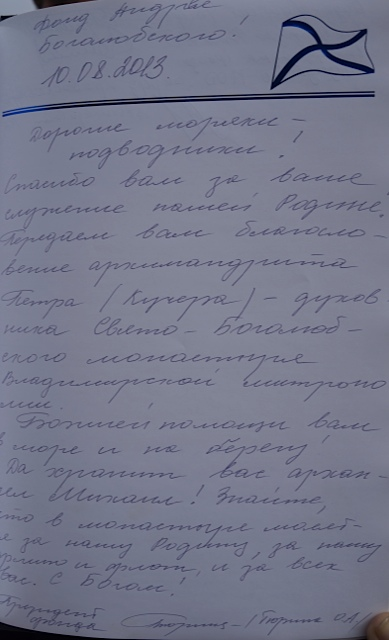 Фонд Андрея
Боголюбского!
10.08.2013.
Дорогие моряки-
подводники!
Спасибо вам за ваше
служение нашей Родине.
Передаем вам благосло-
вение архимандрита
Петра (Кучера) - духов
ника Свято-Боголюб-
ского монастыря
Владимирской митропо
лии.
Божией помощи вам
в море и на берегу!
Да хранит вас архан-
гел Михаил! Знайте,
что в монастыре молят-
ся за нашу Родину, за нашу
армию и флот, и за всех
вас. С Богом!
Президент
фонда